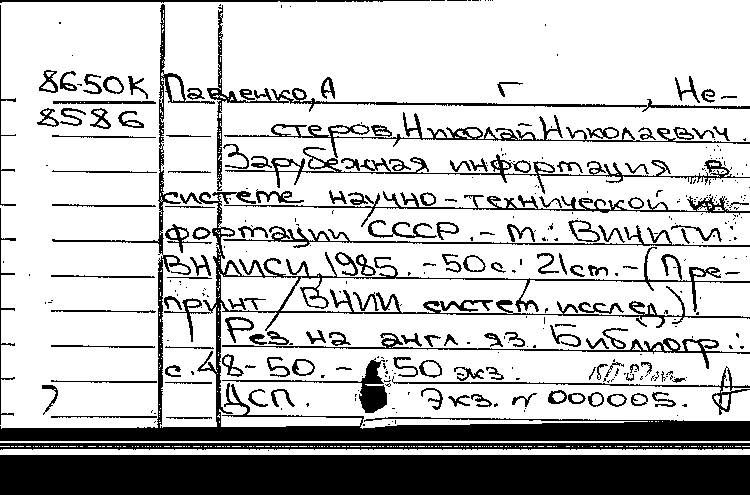 86-50К Павленко, А г , Не-
8586 стеров, Николай Николаевич.
Зарубежная информация в
системе научно-технической ин-
формации СССР. - М.: ВИНИТИ:
ВНИИСИ, 1985. - 50 с.: 21 см. - (Пре-
принт / ВНИИ систем. исслед.)
Рез. на англ. яз. Библиогр.:
с. 48-50. - 50 экз.
ДСП. Экз. N 000005.